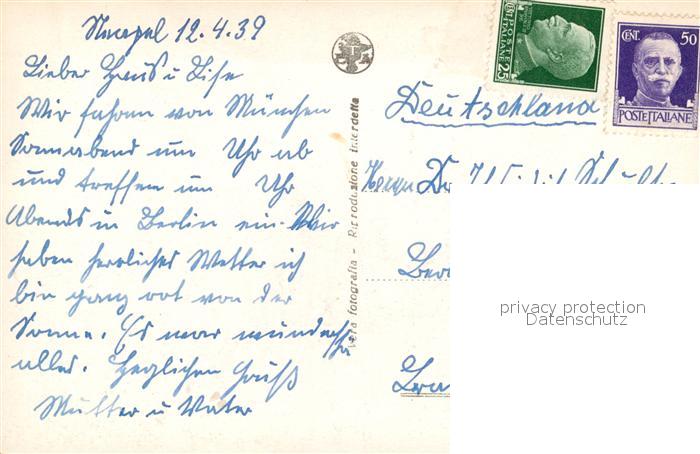 Neapel 12.4.39
Lieber Hans u Lise
Wir fahren von München
Sonnabend um Uhr ab
und treffen um Uhr
Abends in Berlin ein. Wir
haben herrliches Wetter ich
bin ganz rot von der
Sonne. Es war wunderschön
alles. Herzlichen Gruß
Mutter u Vater
Vera fotografia - Riproduzione interdetta
POSTE ITALIANE
CENT. 25
CENT. 50
POSTE ITALIANE
Deutschland
Herrn Dr.
privacy protection
Datenschutz